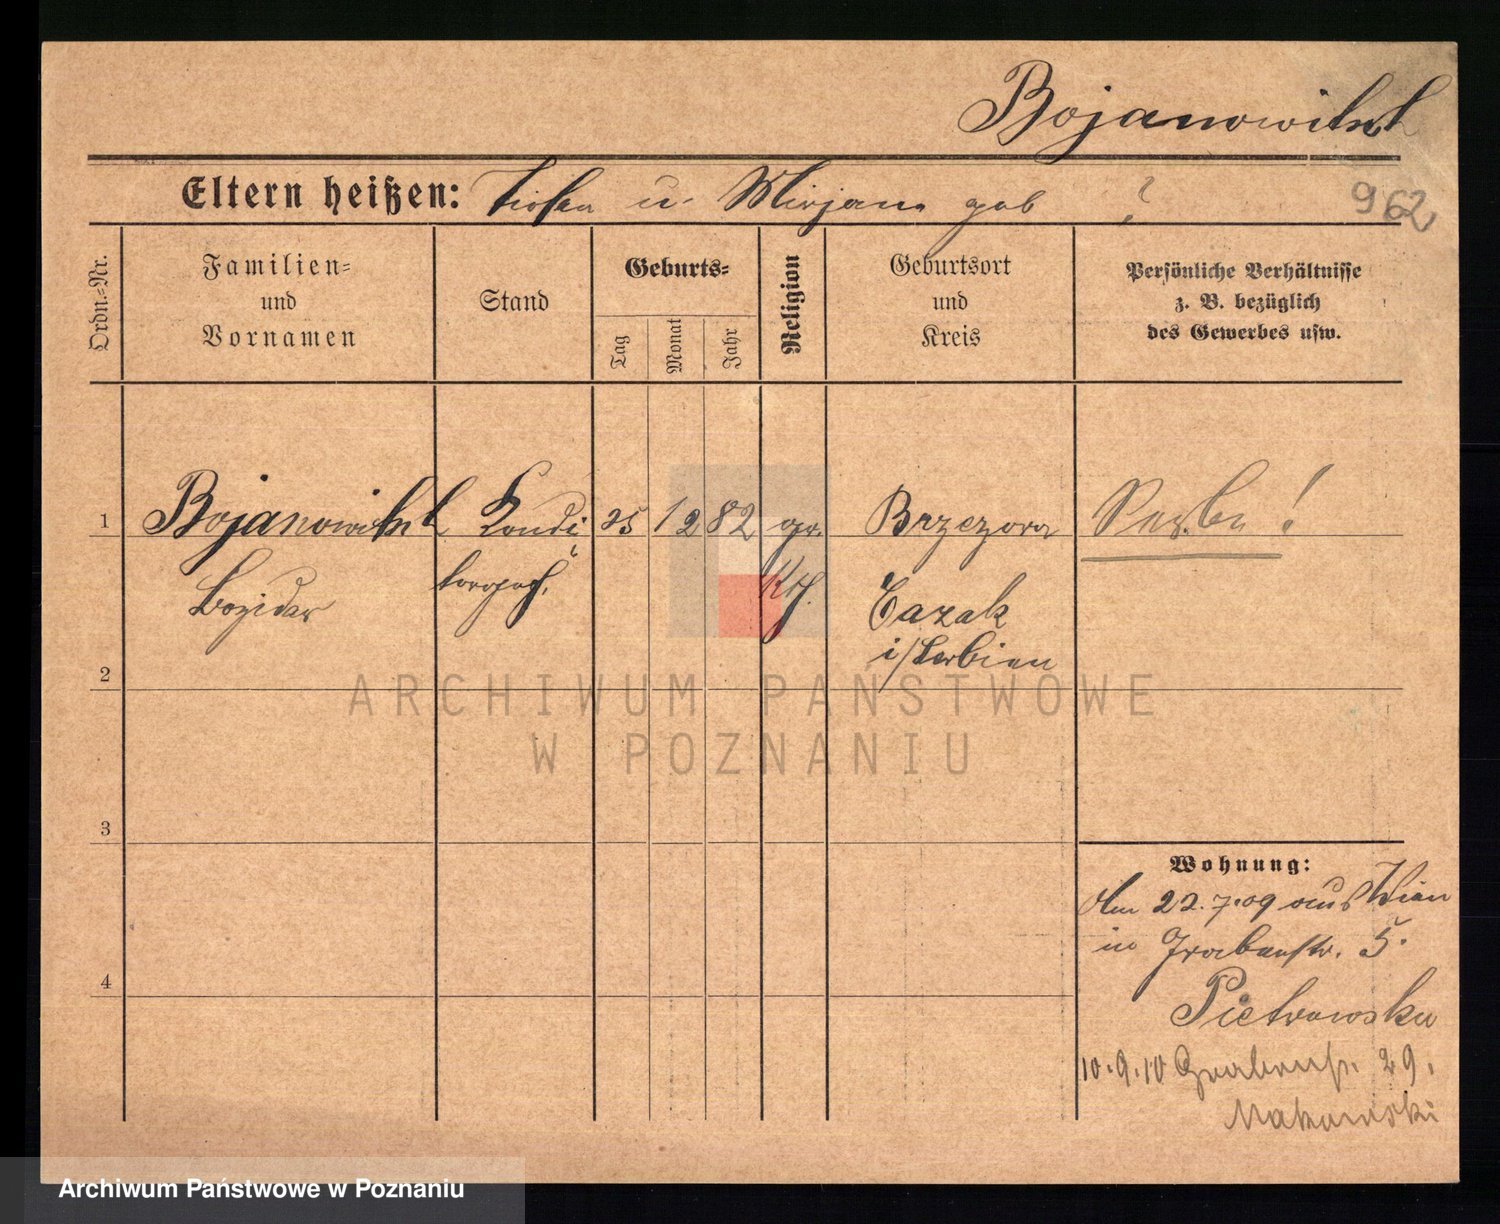 Bojanowitsch
962
Eltern heißen: u. Mirjana geb ?
Ordn.=Nr.
Familien=
und
Vornamen
Stand
Geburts=
Tag
Monat
Jahr
Religion
Geburtsort
und
Kreis
Persönliche Verhältnisse
z. B. bezüglich
des Gewerbes usw.
1
Bojanowitsch
Bozidar
Kondi
25
12
82
gr.
Kth.
Brzezova
Cazak
i/Serbien
Serbe!
2
3
4
Wohnung:
Am 22.7.09 aus Wien
in Grabenstr. 5.
Pietrowska
10.9.10 Grabenstr. 29.
Makowski
ARCHIWUM PAŃSTWOWE
W POZNANIU
Archiwum Państwowe w Poznaniu